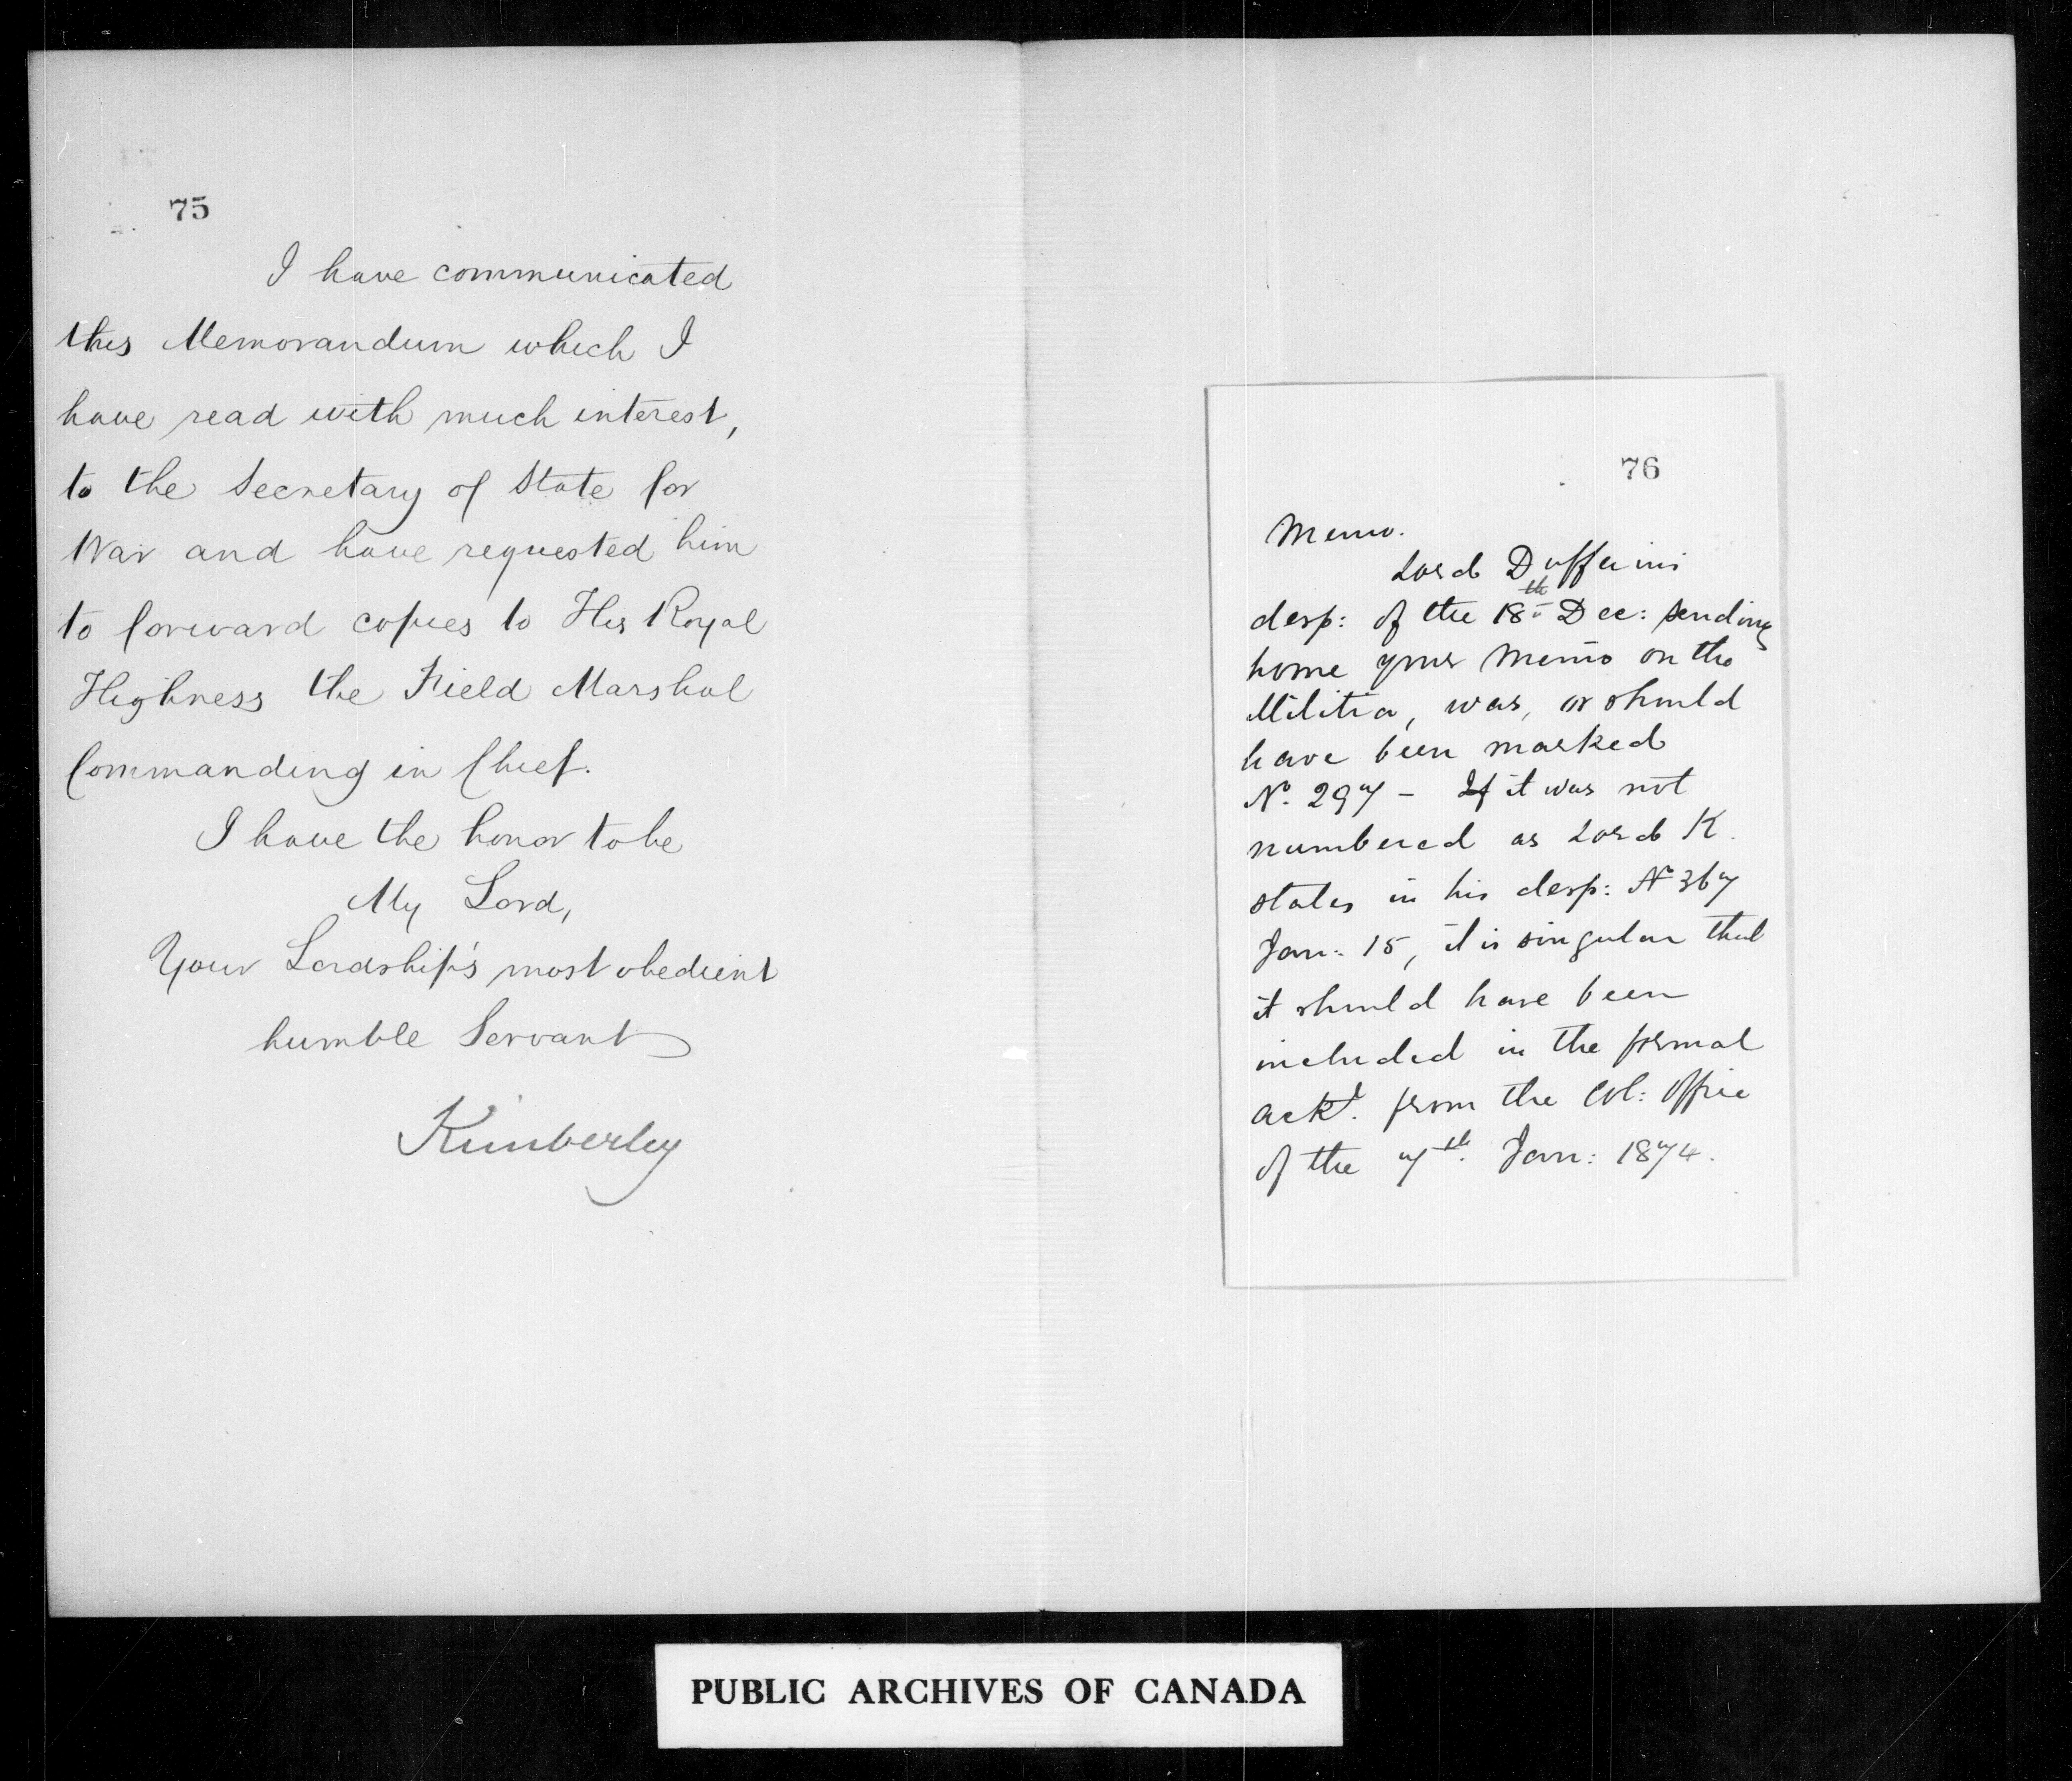 75
I have communicated
this Memorandum which I
have read with much interest,
to the Secretary of State for
War and have requested him
to forward copies to His Royal
Highness the Field Marshal
Commanding in Chief.
I have the honor to be
My Lord,
Your Lordship's most obedient
humble Servant
Kimberley
76
Memo.
Lord Dufferin's
desp: of the 18th Dec: sending
home your Memo on the
Militia, was, or should
have been marked
No. 297 - If it was not
numbered as Lord K.
states in his desp: No 367
Jan: 15, it is singular that
it should have been
included in the formal
ackt. from the Col: Office
of the 7th. Jan: 1874.
PUBLIC ARCHIVES OF CANADA